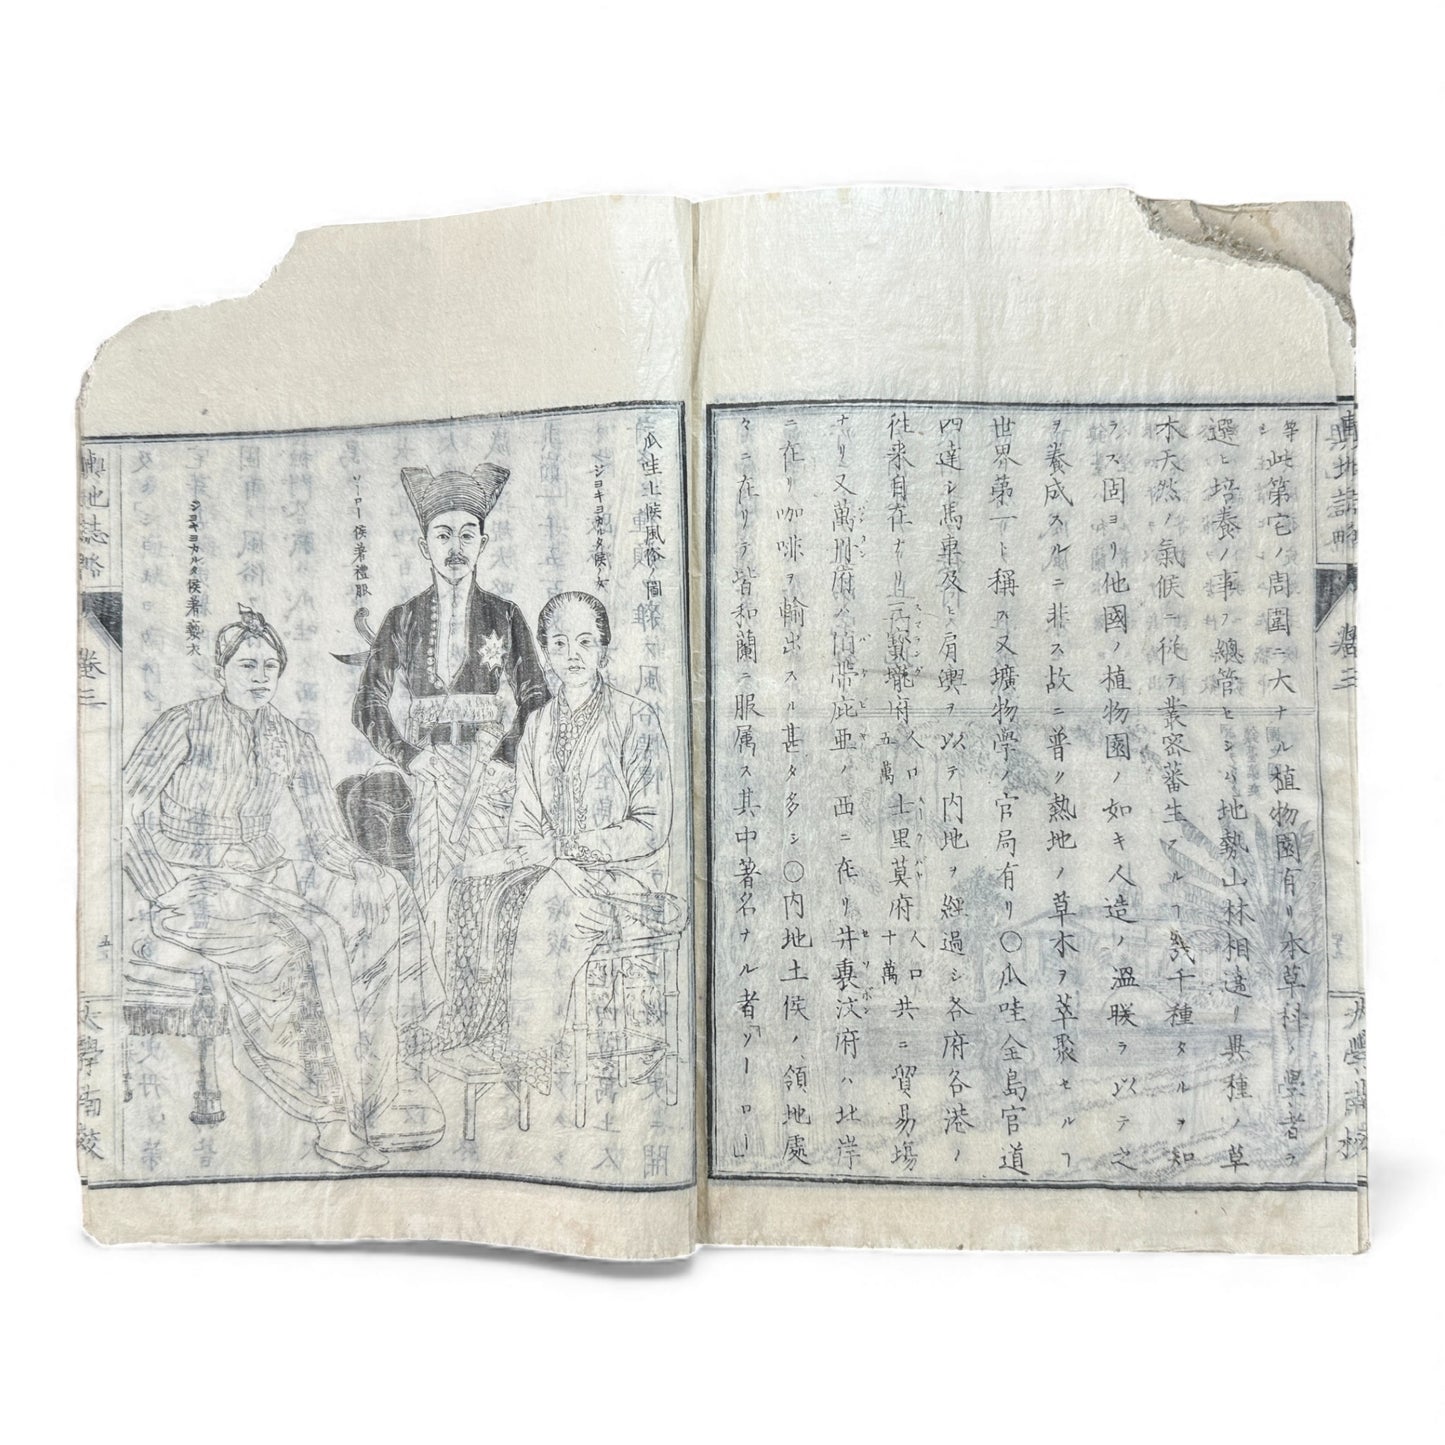 輿地誌略
卷三
大學南校
等此第宅ノ周圍ニ大ナル植物園有リ本草科ノ學者ヲ
選ヒ培養ノ事ヲ總管セシム地勢山林相違リ異種ノ草
木天然ノ氣候ニ從テ叢密蕃生スルヿ幾千種タルヲ知
ラス固ヨリ他國ノ植物園ノ如キ人造ノ溫暖ヲ以テ之
ヲ養成スルニ非ス故ニ普ク熱地ノ草木ヲ萃聚セルヿ
世界第一ト稱ス又壙物學ノ官局有リ〇瓜哇全島官道
四達シ馬車及ヒ肩輿ヲ以テ内地ヲ經過シ各府各港ノ
往来自在ナリ
人口五萬
土里莫府
人口十萬
共ニ貿易場
ナリ又萬
府ハ
ノ西ニ在リ井裏汶府ハ北岸
ニ在リ咖啡ヲ輸出スル甚タ多シ〇内地土侯ノ領地處
々ニ在リテ皆和蘭ニ服属ス其中著名ナル者「ソーロー」
瓜哇土候風俗ノ圖
ジヨキヨカルタ侯ノ女
ソーロー侯著禮服
ジヨキヨカルタ侯著褻衣
輿地誌略
卷三
五
大學南校